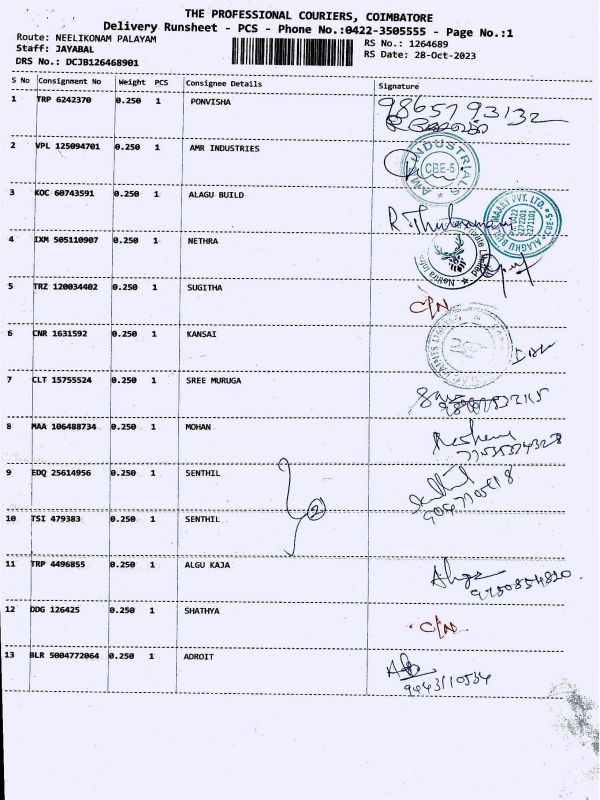 THE PROFESSIONAL COURIERS, COIMBATORE
Delivery Runsheet - PCS - Phone No.:0422-3505555 - Page No.:1
Route: NEELIKONAM PALAYAM
RS No.: 1264689
Staff: JAYABAL
RS Date: 28-Oct-2023
DRS No.: DCJB126468901
S No Consignment No Weight PCS Consignee Details Signature
1 TRP 6242370 0.250 1 PONVISHA 9865793132
2 VPL 125094701 0.250 1 AMR INDUSTRIES
INDUSTRIALS CBE-5
3 KOC 60743591 0.250 1 ALAGU BUILD
4 IXM 505110907 0.250 1 NETHRA
5 TRZ 120034402 0.250 1 SUGITHA C/N
6 CNR 1631592 0.250 1 KANSAI
7 CLT 15755524 0.250 1 SREE MURUGA
8 MAA 106488734 0.250 1 MOHAN
9 EDQ 25614956 0.250 1 SENTHIL
2
10 TSI 479383 0.250 1 SENTHIL
11 TRP 4496855 0.250 1 ALGU KAJA
9750854820
12 DDG 126425 0.250 1 SHATHYA C/N
13 BLR 5004772064 0.250 1 ADROIT
9043110534